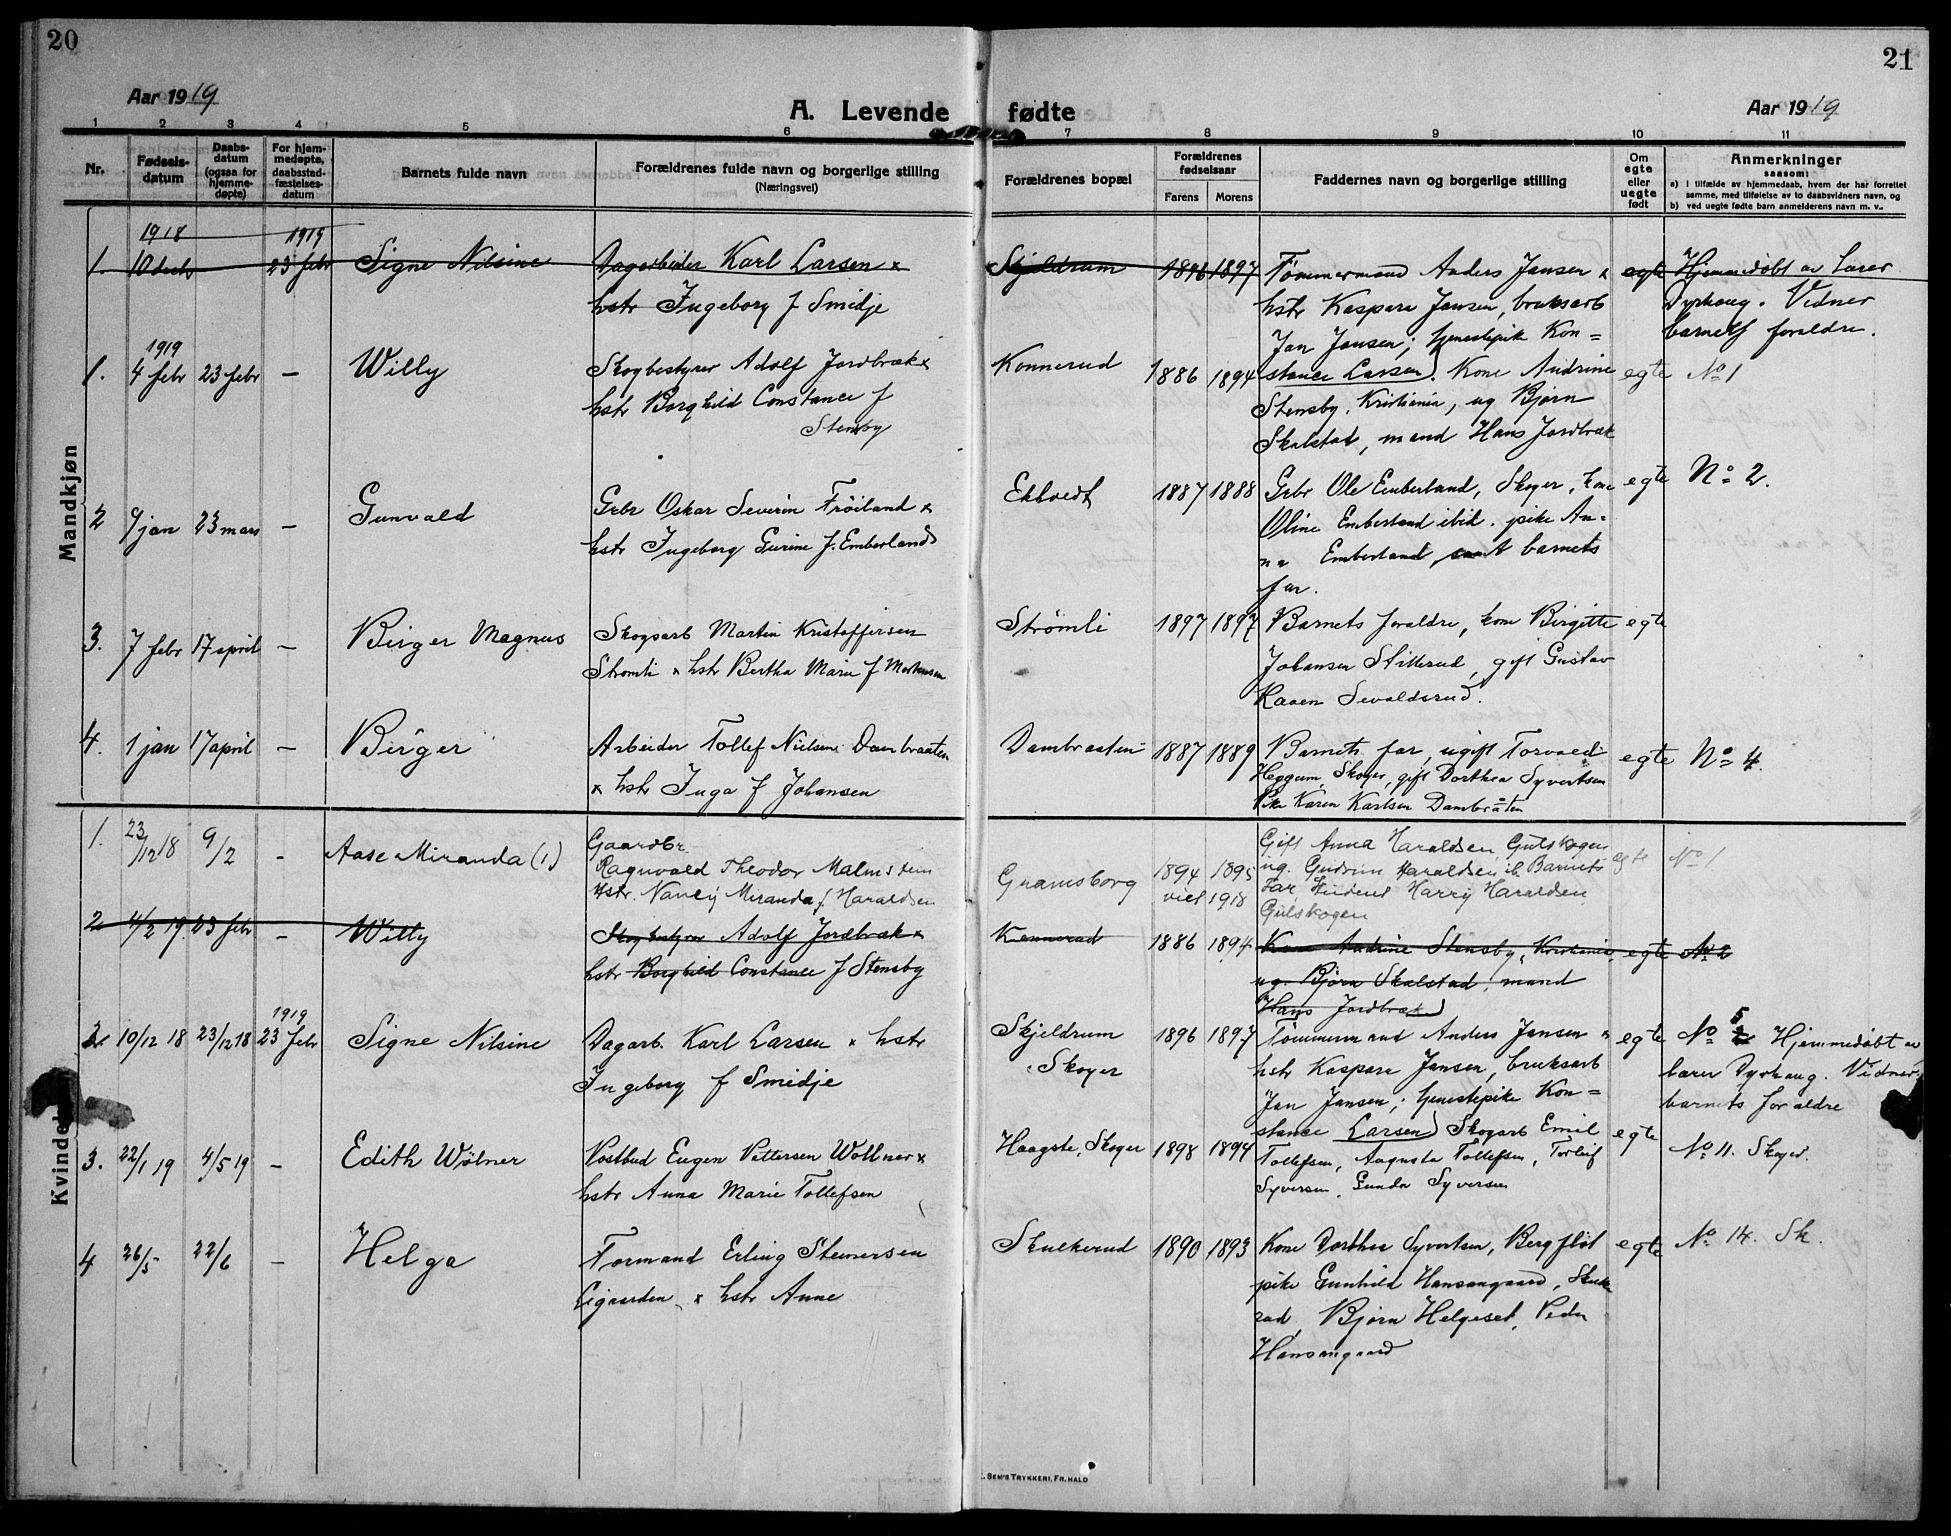 20
21
Aar 1919
A. Levende fødte
Aar 1919
1 2 3 4 5 6 7 8 9 10 11
Nr.
Fødsels-
datum
Daabs-
datum
(ogsaa for
hjemme-
døpte)
For hjem-
medøpte,
daabsstad-
fæstelses-
datum
Barnets fulde navn
Forældrenes fulde navn og borgerlige stilling
(Næringsvei)
Forældrenes bopæl
Forældrenes
fødselsaar
Farens Morens
Faddernes navn og borgerlige stilling
Om
egte
eller
uegte
født
Anmerkninger
saasom:
a) i tilfælde av hjemmedaab, hvem der har forrettet
samme, med tilføielse av to daabsvidners navn, og
b) ved uegte fødte barn anmelderens navn m. v.
Mandkjøn
1918 1919
1. 10 decbr 23 febr Signe Nilsine Dagarbeider Karl Larsen × Skjeldrum 1896 1897 Tømmermand Anders Jansen × egte Hjemmedøbt av Lærer
hstr Ingeborg f Smidje hstr Kaspara Jansen, bruksarb Dyrhaug. Vidner
Jan Jansen; tjenestepike Kon= barnets foraldre.
1919
1. 4 febr 23 febr — Willy Skogbestyrer Adolf Jordbræk × Konnerud 1886 1894 stance Larsen). Kone Andrine egte No 1
hstr Borghild Constance f Stensby, Kristiania, ug Bjørn
Stensby Skalstad, mand Hans Jordbræk
2 9 jan 23 mars — Gunvald Grbr Oskar Severin Frøiland × Ekholdt 1887 1888 Grbr Ole Emberland, Skoger, kone egte No 2.
hstr Ingeborg Gurine f. Emberland Oline Emberland ibid. pike An=
na Emberland, samt barnets
far.
3. 7 febr 17 april — Birger Magnus Skogsarb Martin Kristoffersen Strømli 1897 1897 Barnets foraldre, kone Birgitte egte
Strømli × hstr Bertha Marie f Mortensen Johansen Stillerud, gift Gustav
Kaasen Sevaldsrud.
4. 1 jan 17 april — Birger Arbeider Tollef Nielsen Dambraaten Dambraaten 1887 1889 Barnets far, ugift Torvald egte No 4.
× hstr Inga f Johansen Heggum, Skoger, gift Dorthea Syvertsen
Pike Karen Karlsen Dambråten
Kvindekjøn
1. 23/12 18 9/2 — Aase Miranda (1) Gaardbr. Gift Anna Haraldsen, Gulskogen egte No 1
Ragnvald Theodor Malmstein Gramsborg 1894 1895 ug. Gudrun Haraldsen ib. Barnets
Hstr. Nancy Miranda f. Haraldsen viet 1918 Far, Student Harry Haraldsen
Gulskogen
2 4/2 19. 23 febr — Willy Skogbestyrer Adolf Jordbræk × Konnerud 1886 1894 Kone Andrine Stensby, Kristiania, egte No 2
hstr Borghild Constance f Stensby ug. Bjørn Skalstad, mand
Hans Jordbræk
1919
2. 10/12 18 23/12 18 23 febr Signe Nilsine Dagarb. Karl Larsen × hstr Skjeldrum 1896 1897 Tømmermand Anders Jansen × egte No 5 2 Hjemmedøbt av
Ingeborg f Smidje Skoger hstr Kaspara Jansen, bruksarb lærer Dyrhaug. Vidner:
Jan Jansen; tjenestepike Kon= barnets foraldre
3. 22/1 19 4/5 19 — Edith Wölner Postbud Eugen Pettersen Wöllner × Haagste, Skoger 1898 1894 stance Larsen) Skogsarb Emil egte No 11. Skoger.
hstr Anna Marie Tollefsen Tollefsen, Augusta Tollefsen, Torleif
Syversen, Gunda Syversen
4 26/5 22/6 — Helga Formand Erling Steinersen Skulkerud 1890 1893 Kone Dorthea Syvertsen, Bergfløt egte No 14. Sk.
Ligaarden × hstr Anne pike Gunhild Hansangaard, Skulke
rud, Bjørn Helgeset, Peder
Hansangaard
SEM'S TRYKKERI, FR.HALD